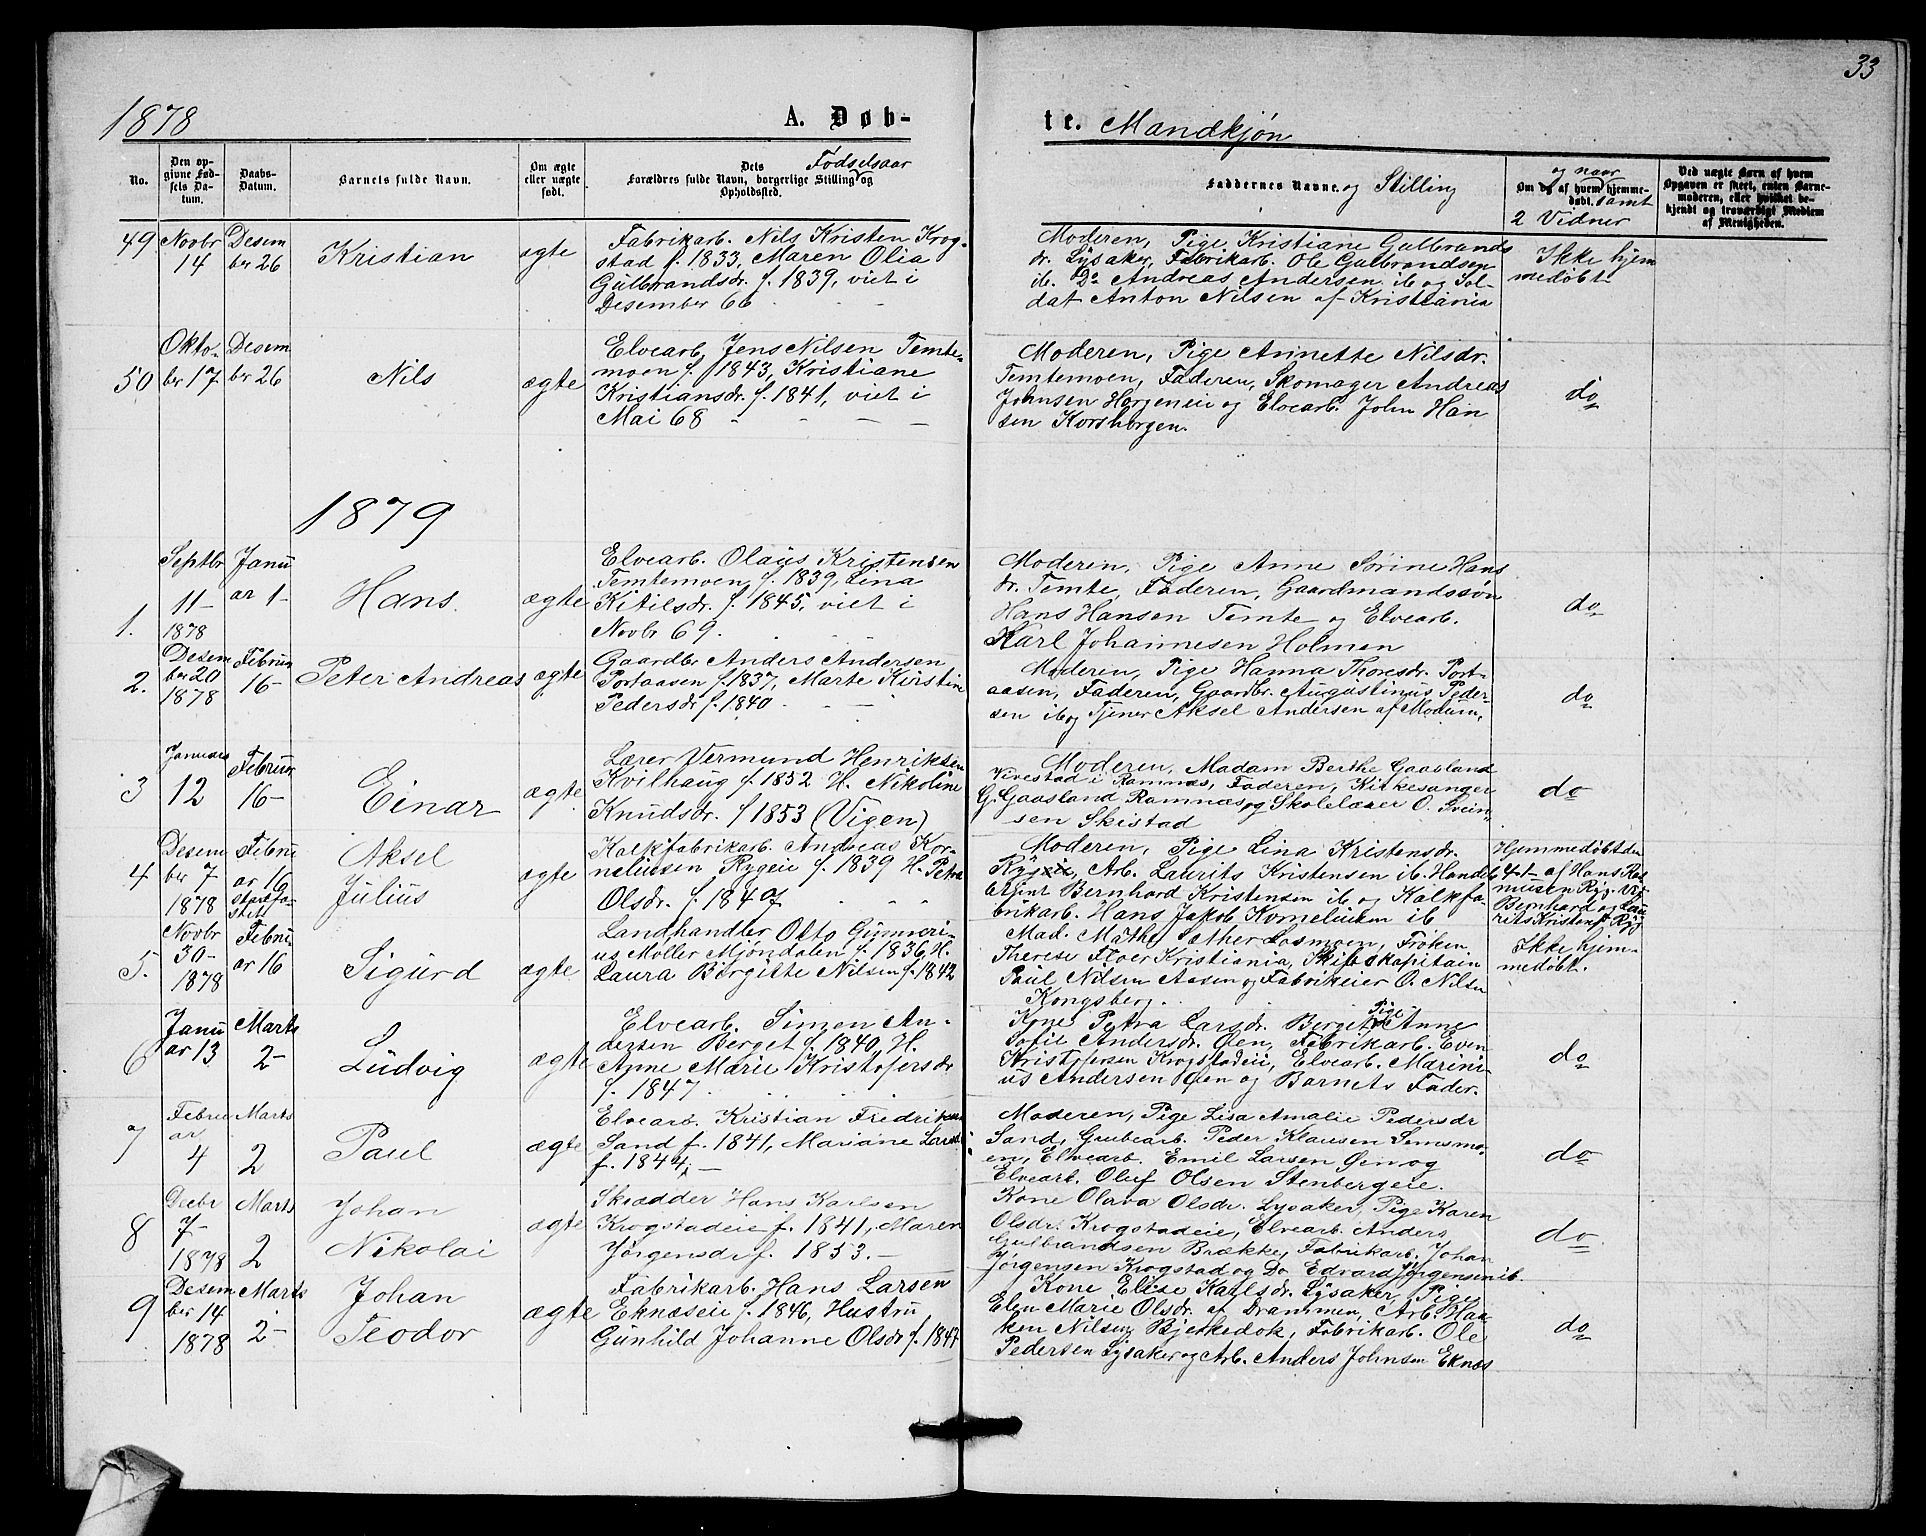 33
1878
A. Døb-
te. Mandkjøn
No.
Den op-
givne Fød-
sels Da-
tum.
Daabs-
Datum.
Barnets fulde Navn.
Om ægte
eller uægte
født.
Dets Fødselsaar
Forældres fulde Navn, borgerlige Stilling og
Opholdssted.
Faddernes Navne og Stilling
og naar
Om og af hvem hjemme-
døbt. samt
2 Vidner
Ved uægte Børn af hvem
Opgaven er skeet, enten Barne-
moderen, eller hvilket be-
kjendt og troværdigt Medlem
af Menigheden.
49
Novbr
14
Desem
ber 26
Kristian
ægte
Fabrikarb. Nils Kristen Krog-
stad f. 1833, Maren Olia
Gulbrandsdr. f. 1839, viet i
Desember 66
Moderen, Pige Kristiane Gulbrands
dr. Lysaker, Fabrikarb. Ole Gulbrandsen
ib. Do Andreas Andersen ib og Sol-
dat Anton Nilsen af Kristiania
Ikke hjem
medøbt
50
Okto-
ber 17
Desem
ber 26
Nils
ægte
Elvearb. Jens Nilsen Temte-
moen f. 1843, Kristiane
Kristiansdr. f. 1841, viet i
Mai 68
Moderen, Pige Annette Nilsdr.
Temtemoen, Faderen, Skomager Andreas
Johnsen Horgeneie og Elvearb. John Han
sen Korsborgen.
do
1879
1.
Septbr
11-
1878
Janu
ar 1-
Hans.
ægte
Elvearb. Olaus Kristensen
Temtemoen f. 1839, Lina
Kitilsdr. f. 1845, viet i
Novbr 69.
Moderen, Pige Anne Sørine Hans
dr. Temte, Faderen, Gaardmandssøn
Hans Hansen Temte og Elvearb.
Karl Johannesen Holmen
do
2.
Desem
ber 20
1878
Februar
16-
Peter Andreas
ægte
Gaardbr Anders Andersen
Portaasen f. 1837, Marte Kirstine
Pedersdr f. 1840
Moderen, Pige Hanna Thoresdr. Port-
aasen, Faderen, Gaardbr. Augustinus Peder-
sen ib og Tjener Aksel Andersen af Modum.
do
3
Januar
12
Februar
16-
Einar
ægte
Lærer Vermund Henriksen
Kvilhaug f. 1852 H. Nikoline
Knudsdr. f 1853 (Vigen)
Moderen, Madam Berthe Gaasland
Vivestad i Ramnæs, Faderen, Kirkesanger
G. Gaasland Ramnæs og Skolelærer O. Svein-
sen Skistad
do
4
Desem
ber 7
1878
Febru
ar 16
Aksel
Julius
ægte
Kalkfabrikarb. Andreas Kor-
neliusen Rygeie f. 1839 H. Petra
Olsdr. f. 1849
Moderen, Pige Lina Kristensdr.
Arb. Laurits Kristensen ib. Handels
agent Bernhard Kristensen ib og Kalkfa-
brikarb. Hans Jakob Korneliusen ib
Hjemmedøbt den
4-1- af Hans Ras
musen Ryg. Vid
Bernhard og Lau
rits Kristens. Ryg
5.
Novbr
30-
1878
Febru
ar 16
Sigurd
ægte
Landhandler Otto Gunneri-
us Møller Mjøndalen f. 1836, H.
Laura Birgitte Nilsen f. 1842
Mad. Mathe Sæther Losmoen, Frøken
Therese Floer Kristiania, Skibskapitain
Paul Nilsen Aasen og Fabrikeier O. Nilsen
Kongsberg.
Ikke hjem-
medøbt.
6
Janu
ar 13
Marts
2-
Ludvig
ægte
Elvearb. Simen An-
dersen Berget f. 1840, H.
Anne Marie Kristofersdr
f. 1847
Kone Petra Larsdr. Berget, Pige Anne
Sofie Andersdr. Øen, Fabrikarb. Even
Kristofersen Krogstadeie, Elvearb. Marini-
us Andersen Øen og Barnets Fader.
do
7
Febru
ar
4
Marts
2
Paul
ægte
Elvearb. Kristian Fredriksen
Sand f. 1841, Mariane Larsdr
f. 1844 -
Moderen, Pige Lisa Amalie Pedersdr
Sand, Grubearb. Peder Klausen Semsmo-
en, Elvearb. Emil Larsen Øen og
Elvearb. Oluf Olsen Stenbergeie.
do
8
Decbr
7-
1878
Marts
2
Johan
Nikolai
ægte
Skrædder Hans Karlsen
Krogstadeie f. 1841, Maren
Jørgensdr f. 1853.
Kone Olava Olsdr. Lysaker, Pige Karen
Olsdr. Krogstadeie, Elvearb. Anders
Gulbrandsen Brække, Fabrikarb. Johan
Jørgensen Krogstad og Do Edvard Jørgensen ib.
do
9
Desem
ber 14
1878
Marts
2-
Johan
Teodor
ægte
Fabrikarb. Hans Larsen
Eknæseie f. 1846, Hustru
Gunhild Johanne Olsdr f. 1847
Kone Elise Karlsdr. Lysaker, Pige
Elen Marie Olsdr. af Drammen, Arb. Haa-
ken Nilsen Bjerkedok, Fabrikarb. Ole
Pedersen Lysaker og Arb. Anders Johnsen Eknæs
do